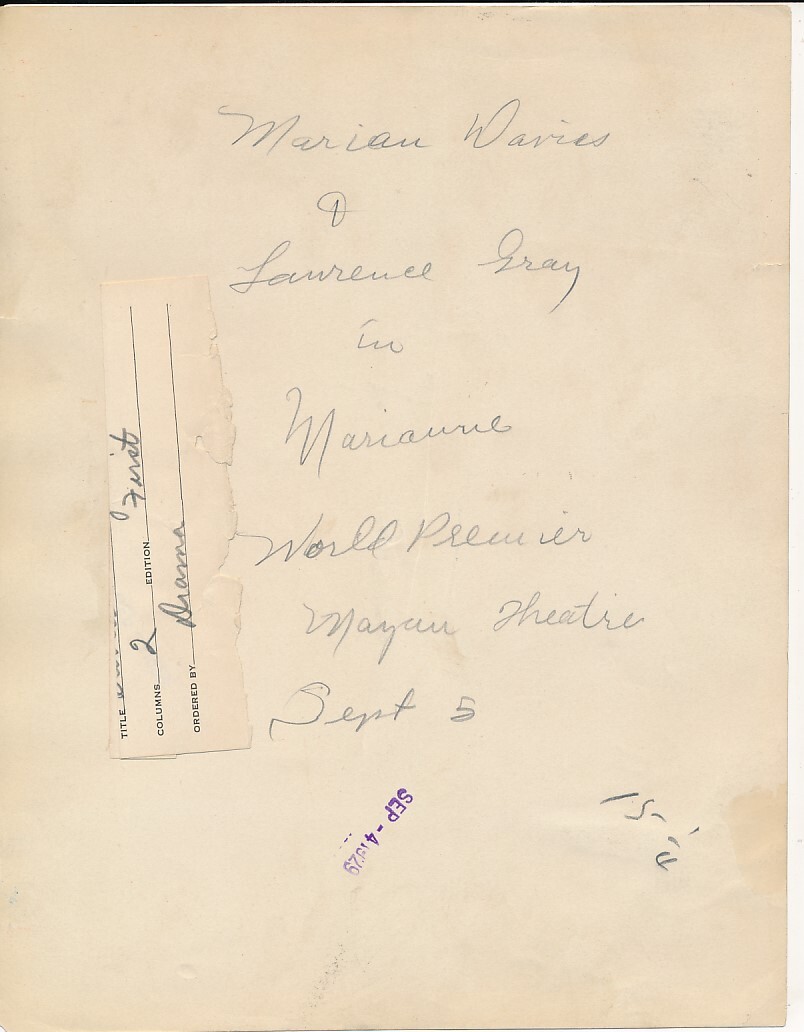 Marian Davies
&
Lawrence Gray
in
Marianne
World Premier
Mayan Theatre
Sept 5
TITLE
COLUMNS 2 EDITION First
ORDERED BY Drama
SEP - 4 1929